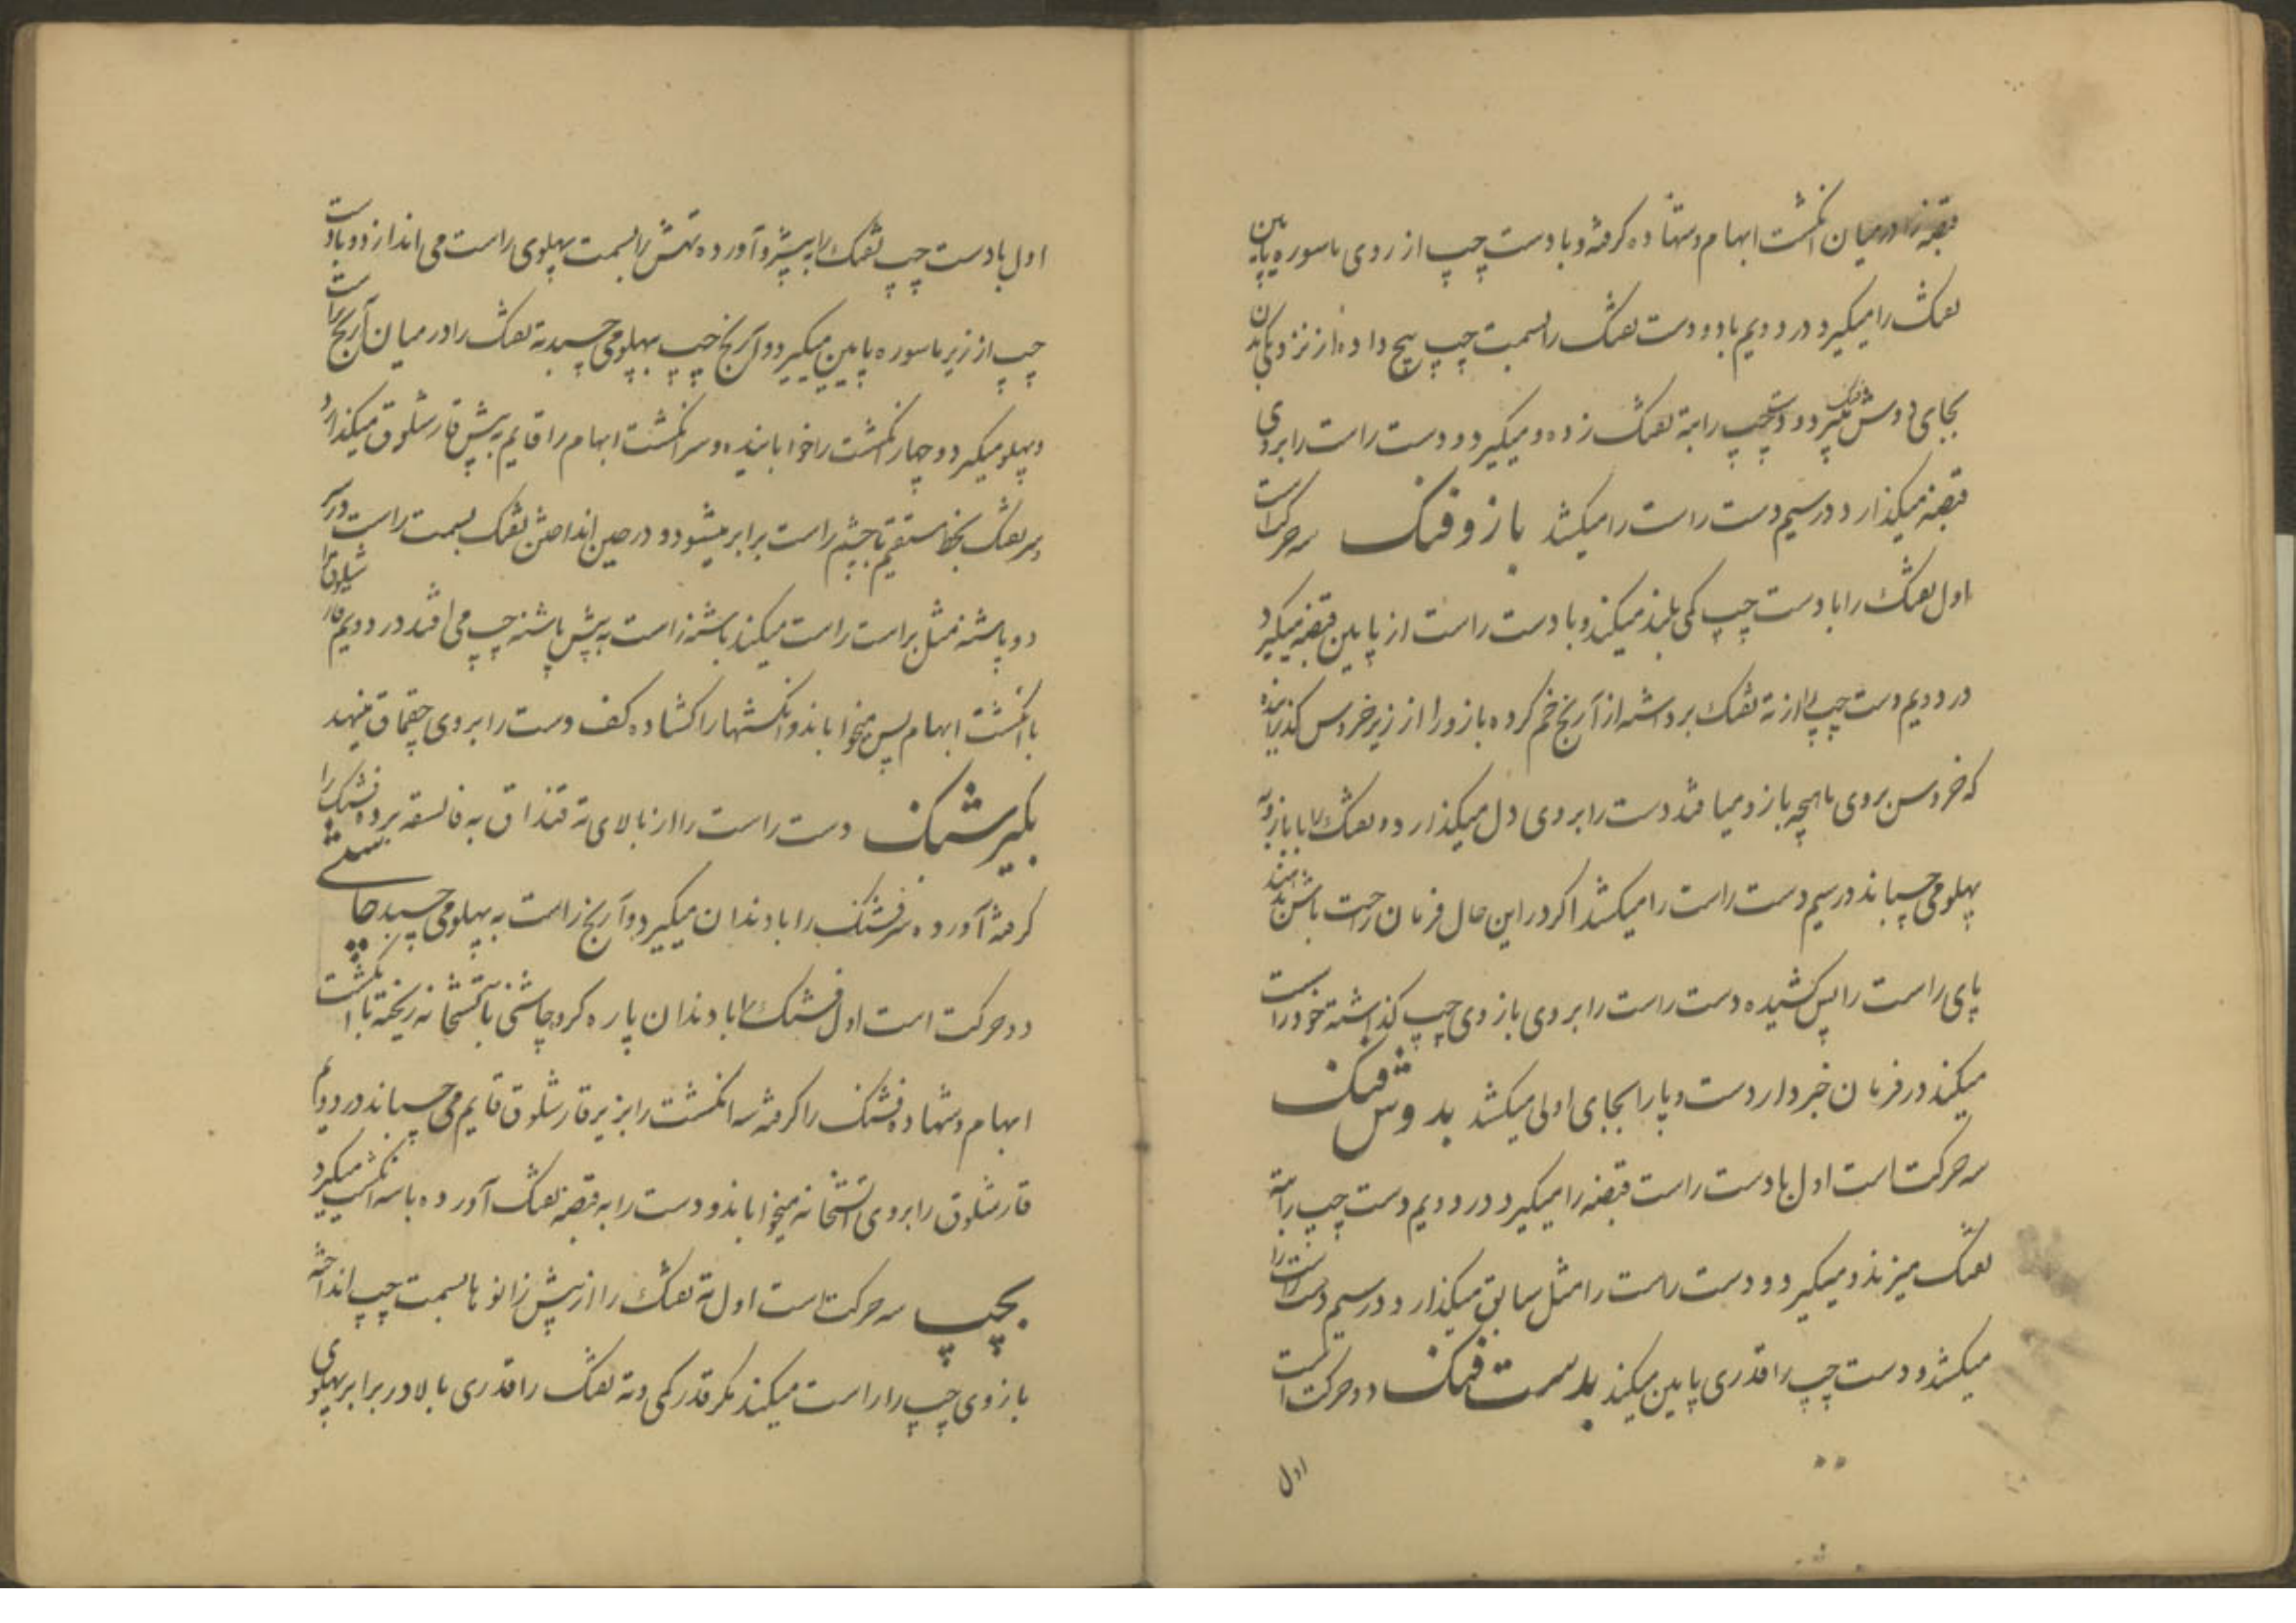 قبضه را درمیان انکشت ابهام و شهاده کرفته و با دست چپ از روی ماسوره پایین
تفنک را میکیرد در دویم با دو دست تفنک را بسمت چپ پیچ داده از نزدیکی بدن
بجای دوش میبرد و دست چپ را بته تفنک زده و میکیرد و دست راست را بروی
قبضه میکذارد در سیم دست راست را میکشد بازو فنک سه حرکت است
اول تفنک را با دست چپ کمی بلند میکند و با دست راست از پایین قبضه میکیرد
در دویم دست چپ را از ته تفنک برداشته از آرنج خم کرده بازو را از زیر خروس کذرانیده
که خروس بروی ماهیچه بازو میافتد دست را بروی دل میکذارد و تفنک را با بازو به
پهلو می چسباند در سیم دست راست را میکشد اکر در این حال فرمان راحت باش بدهند
پای راست را پس کشیده دست راست را بروی بازوی چپ کذاشته خود را سست
میکند در فرمان خبردار دست و پا را بجای اولی میکشد بدوش فنک
سه حرکت است اول با دست راست قبضه را میکیرد در دویم دست چپ را بته
تفنک میزند و میکیرد و دست راست را مثل سابق میکذارد و در سیم دست راست را
میکشد و دست چپ را قدری پایین میکند بدست فنک دو حرکت است
اول
اول با دست چپ تفنک را به پیشرو آورده تهش را بسمت پهلوی راست می اندازد و با دست
چپ از زیر ماسوره پایین میکیرد و آرنج چپ به پهلو می چسبد ته تفنک را درمیان آرنج راست
و پهلو میکیرد و چهار انکشت را خوابانیده و سر انکشت ابهام را قایم به پیش قارشلوق میکذارد
و سر تفنک بخط مستقیم با چشم راست برابر میشود و در حین انداختن تفنک بسمت راست در سر
دو پاشنه نمش براست راست میکند پاشنه راست به پیش پاشنه چپ می افتد در دویم قارشلوق را
با انکشت ابهام پس میخواباند و انکشتها را کشاده کف دست را بروی چقماق مینهد
بکیر فشنک دست راست را از بالای ته قنداق به فالسقه برده فشنک را
کرفته آورده سر فشنک را با دندان میکیرد و آرنج راست به پهلو می چسبد چاشنی
دو حرکت است اول فشنک را با دندان پاره کرده چاشنی بآتشخانه ریخته با انکشت
ابهام و شهاده فشنک را کرفته سه انکشت را بزیر قارشلوق قایم می چسباند در دویم
قارشلوق را بروی آتشخانه میخواباند و دست را به قبضه تفنک آورده با سه انکشت میکیرد
بچپ سه حرکت است اول ته تفنک را از پیش زانوها بسمت چپ انداخته
بازوی چپ را راست میکند مکر قدر کمی و ته تفنک را قدری بالا در برابر پهلوی